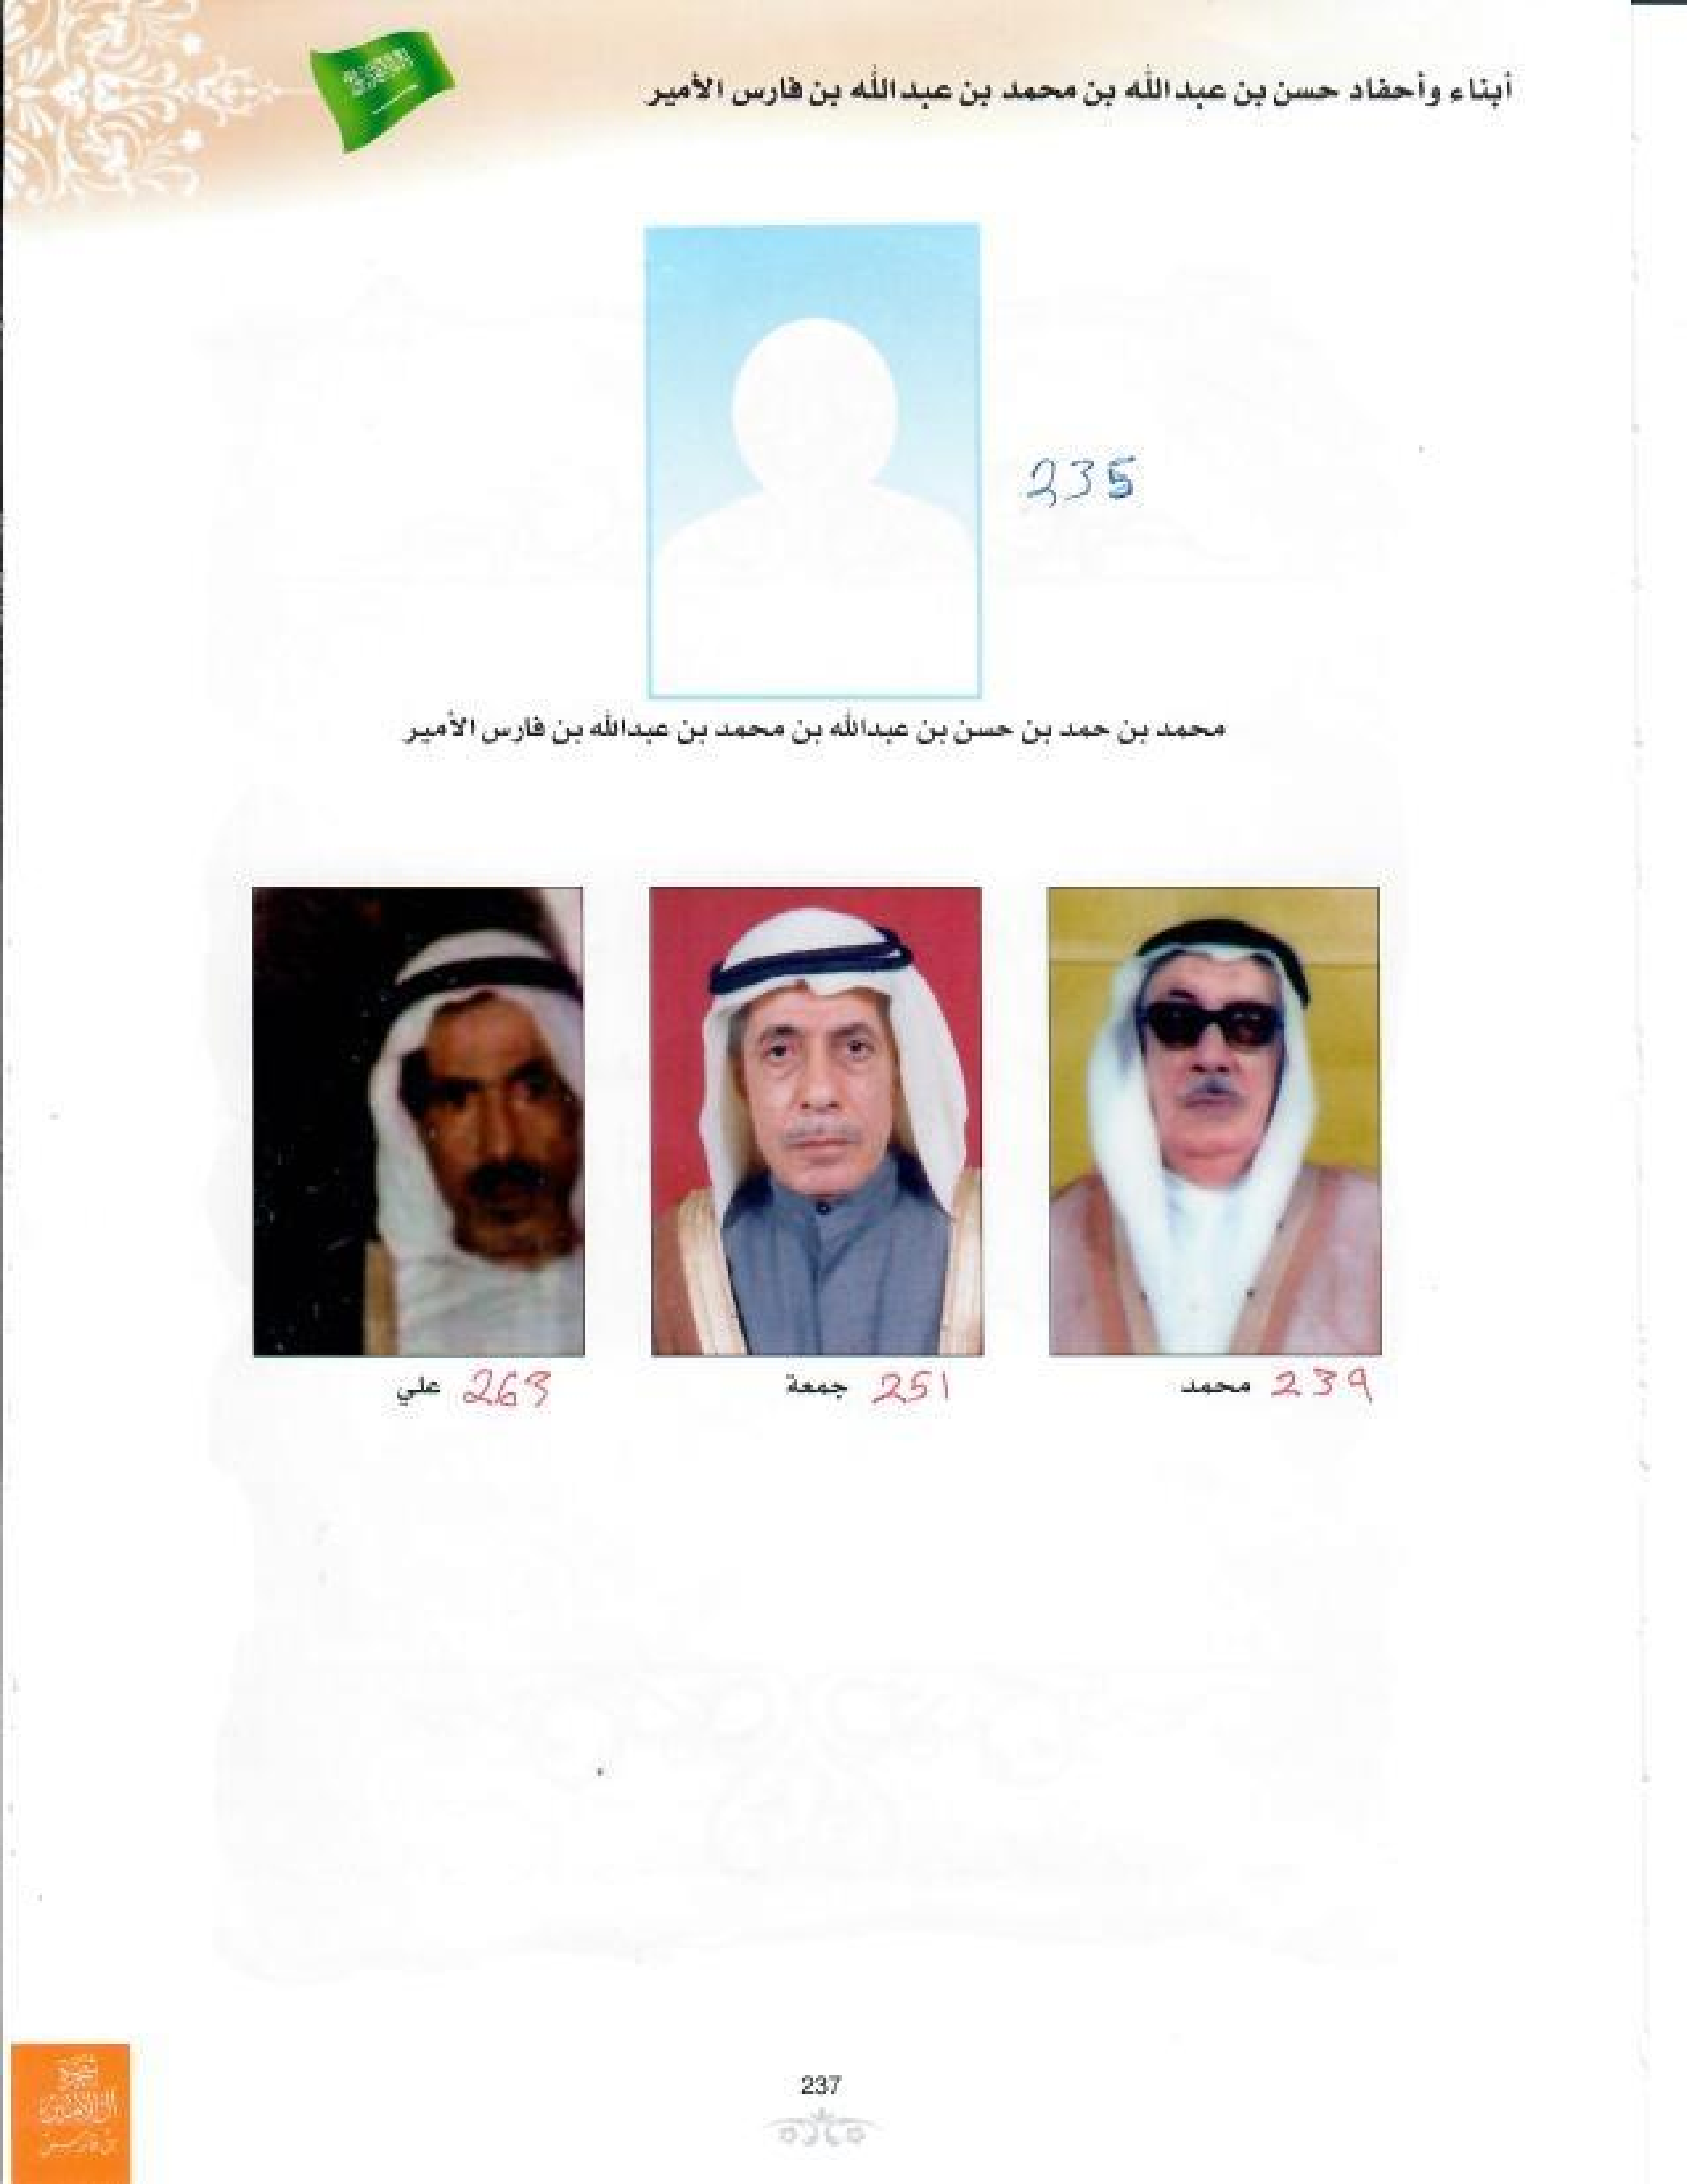 أبناء وأحفاد حسن بن عبدالله بن محمد بن عبدالله بن فارس الأمير
235
محمد بن حمد بن حسن بن عبدالله بن محمد بن عبدالله بن فارس الأمير
239 محمد
251 جمعة
263 علي
شجرة
آل الأمير
بن فارس
237